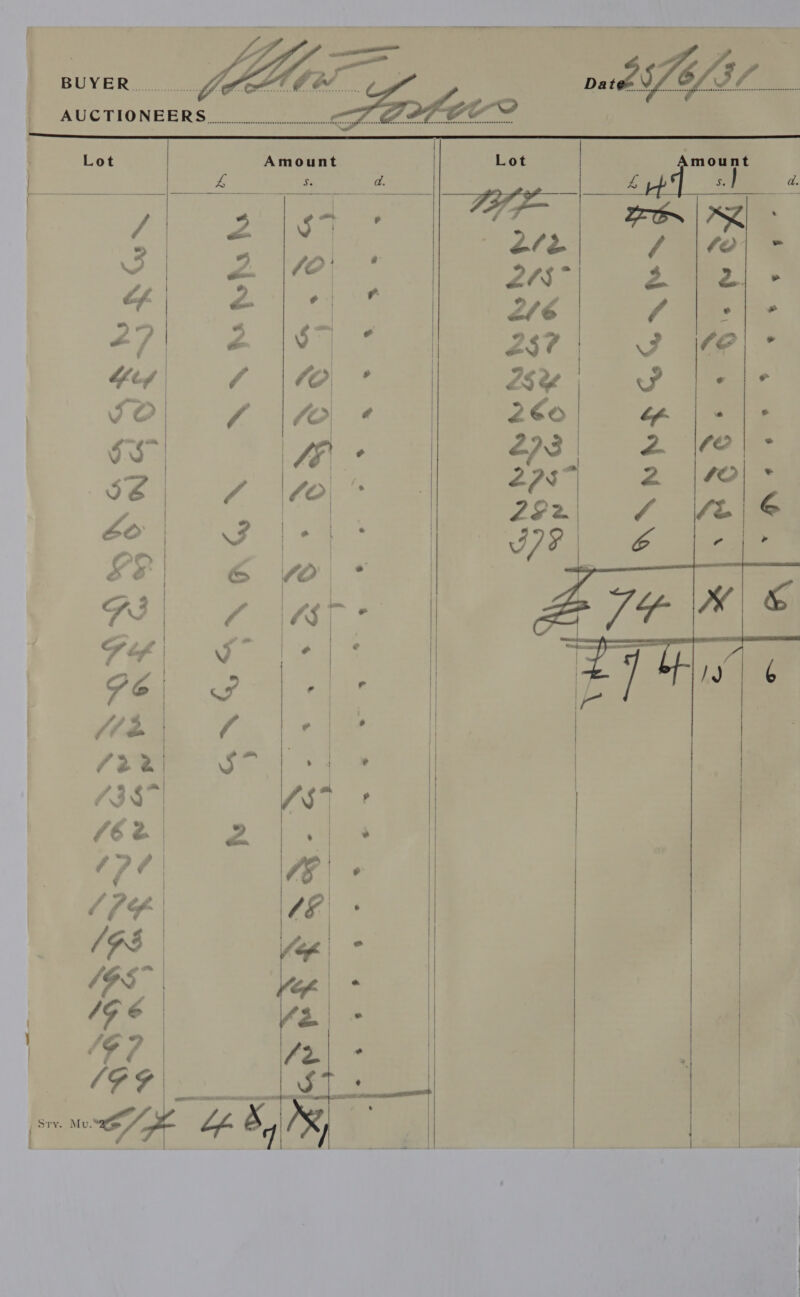 BUYER
Date 25/6/31
AUCTIONEERS
Lot Amount
£ s. d.
1 2 5 "
3 2 10 "
4 2 " "
27 2 5 "
44 1 10 "
50 1 10 "
55 18 "
58 1 10 "
60 3 " "
88 6 10 "
93 1 15 "
94 5 " "
96 3 " "
112 1 " "
122 5 " "
135 15 "
162 2 " "
171 18 "
174 18 "
193 14 "
195 14 "
196 12 "
197 12 "
199 5 "
Srv. Mu.
C/F
Lot Amount
£ s. d.
B/F
212 1 10 "
215 2 2 "
216 1 " "
257 3 10 "
258 3 " "
260 4 " "
273 2 10 "
275 2 10 "
282 1 12 6
378 6 " "
£ 74
£ 74 15 6